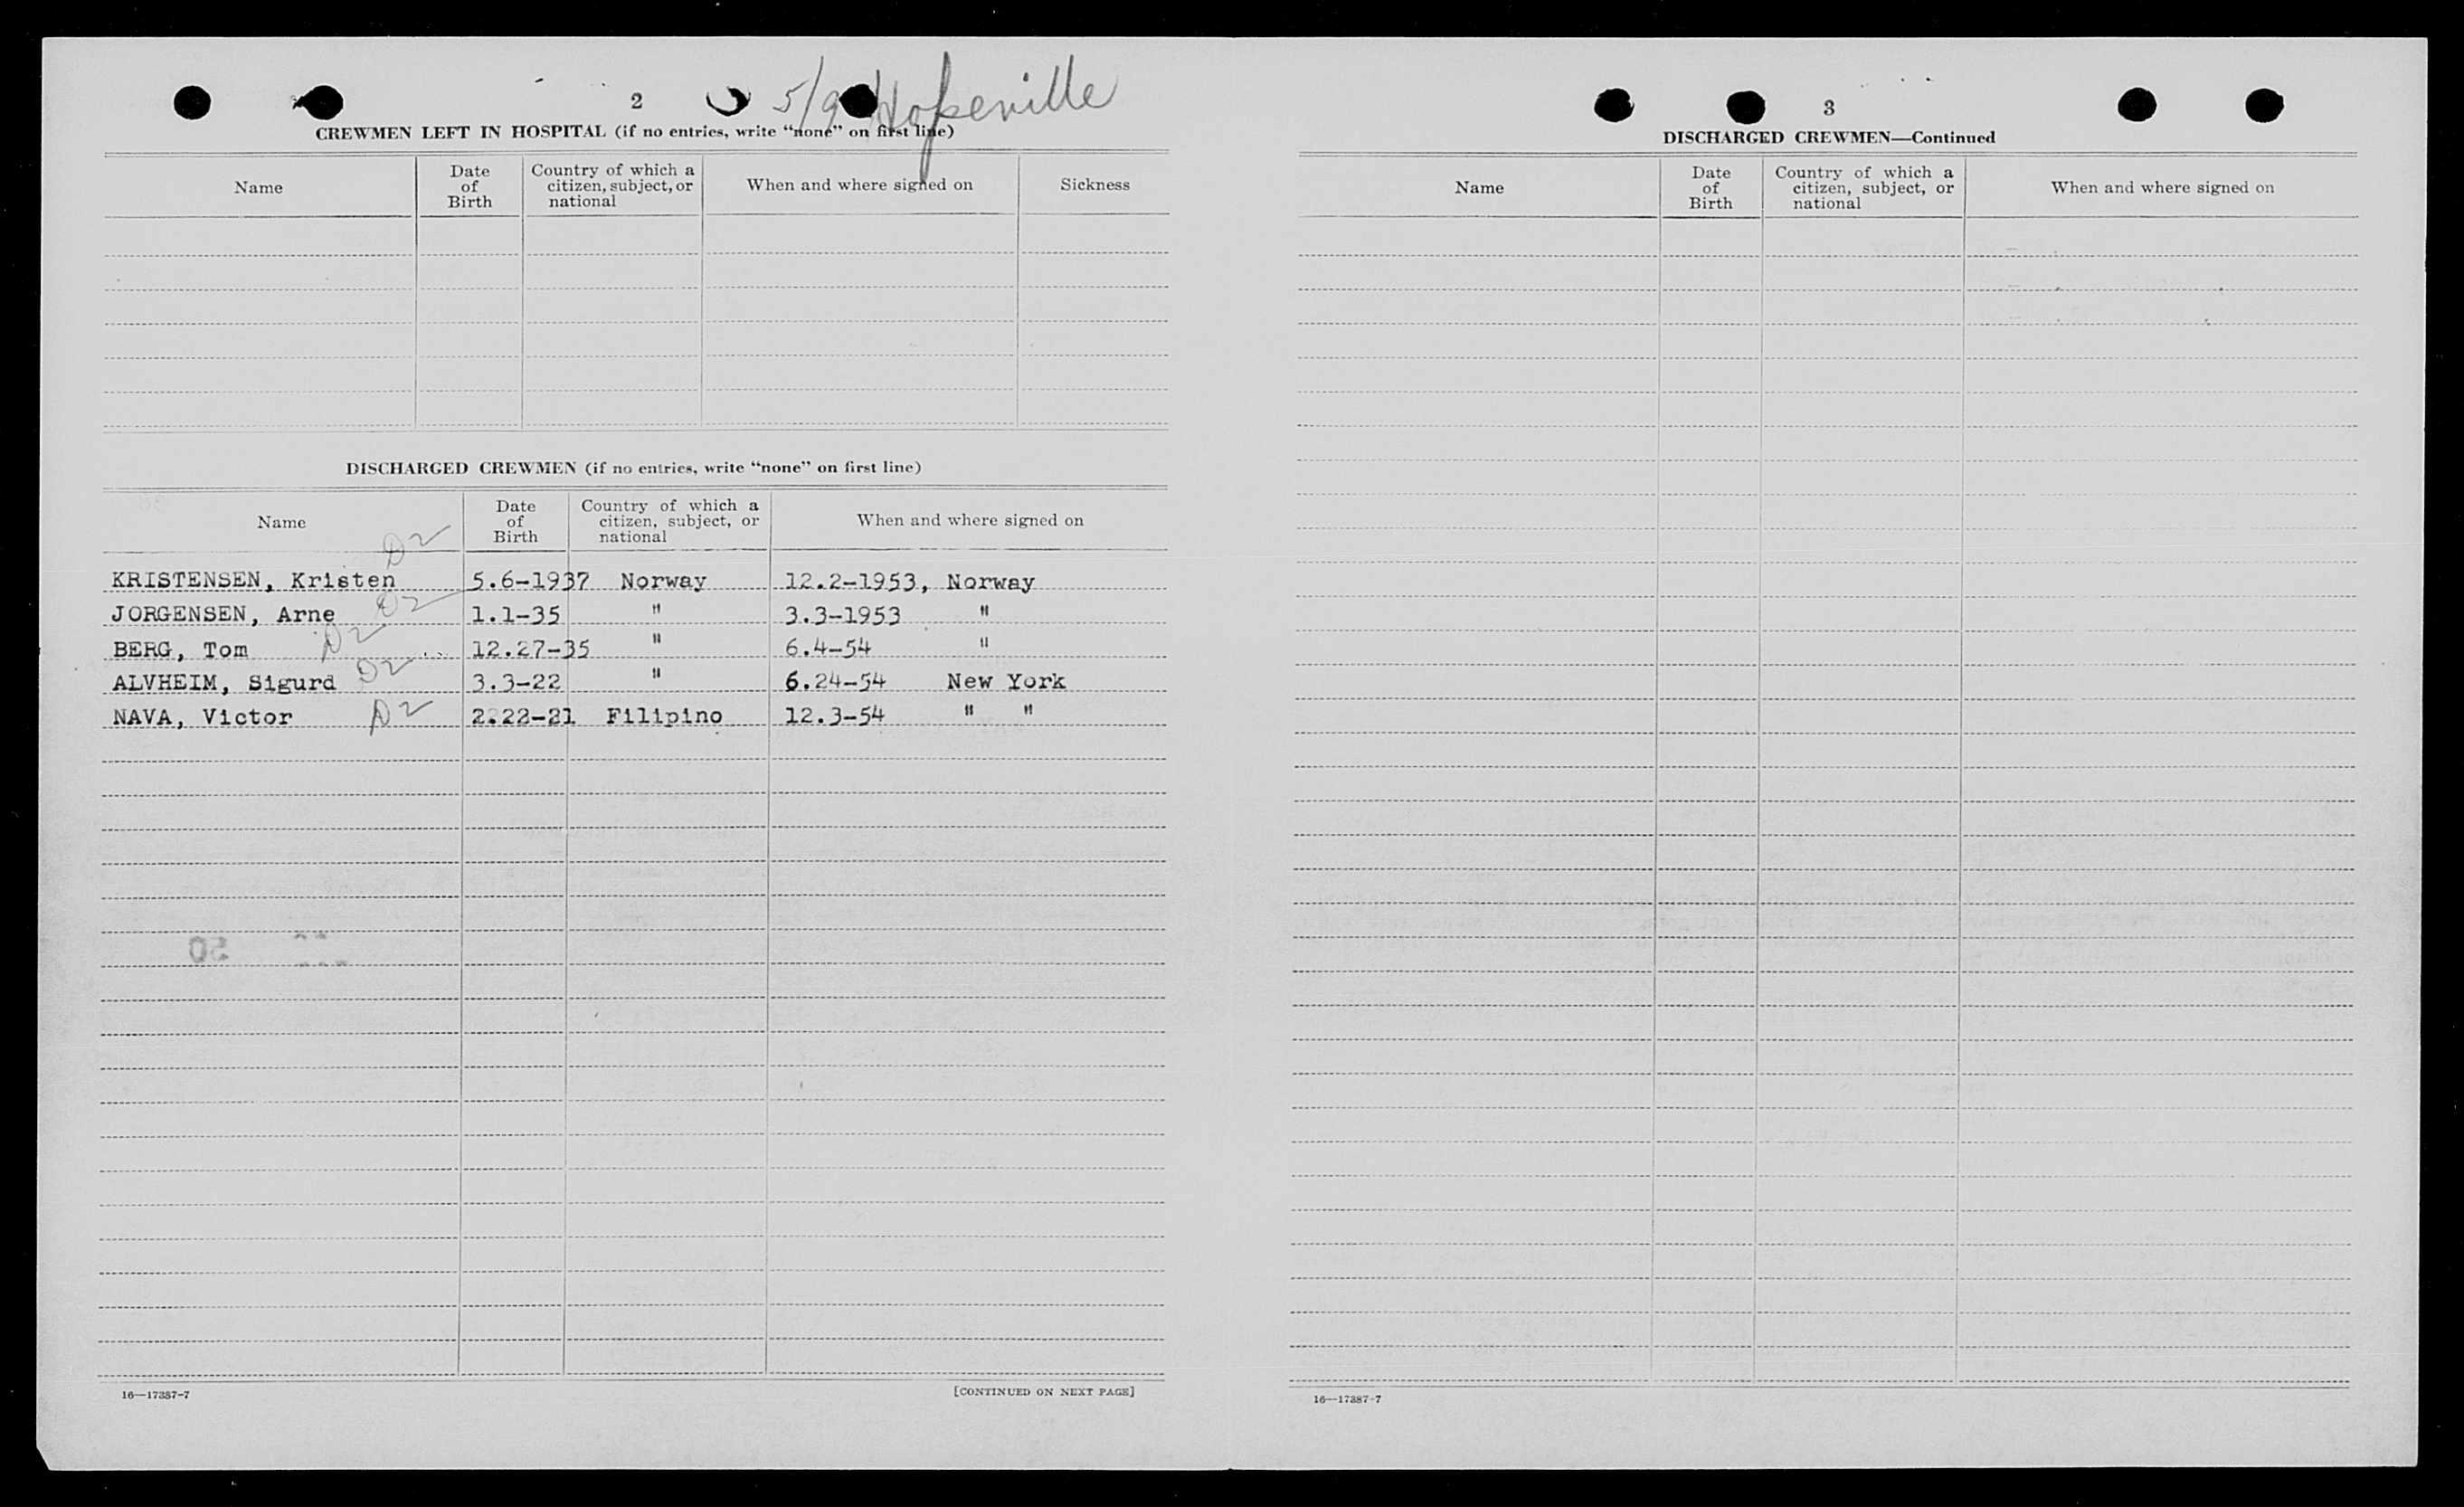 2
5/9 Hopeville
CREWMEN LEFT IN HOSPITAL (if no entries, write “none” on first line)
Name
Date of Birth
Country of which a citizen, subject, or national
When and where signed on
Sickness
DISCHARGED CREWMEN (if no entries, write “none” on first line)
Name
Date of Birth
Country of which a citizen, subject, or national
When and where signed on
D2
KRISTENSEN, Kristen 5.6-1937 Norway 12.2-1953, Norway
JORGENSEN, Arne D2 1.1-35 " 3.3-1953 "
BERG, Tom D2 12.27-35 " 6.4-54 "
ALVHEIM, Sigurd D2 3.3-22 " 6.24-54 New York
NAVA, Victor D2 2.22-21 Filipino 12.3-54 " "
50
16—17387-7
[CONTINUED ON NEXT PAGE]
3
DISCHARGED CREWMEN—Continued
Name
Date of Birth
Country of which a citizen, subject, or national
When and where signed on
16—17387-7